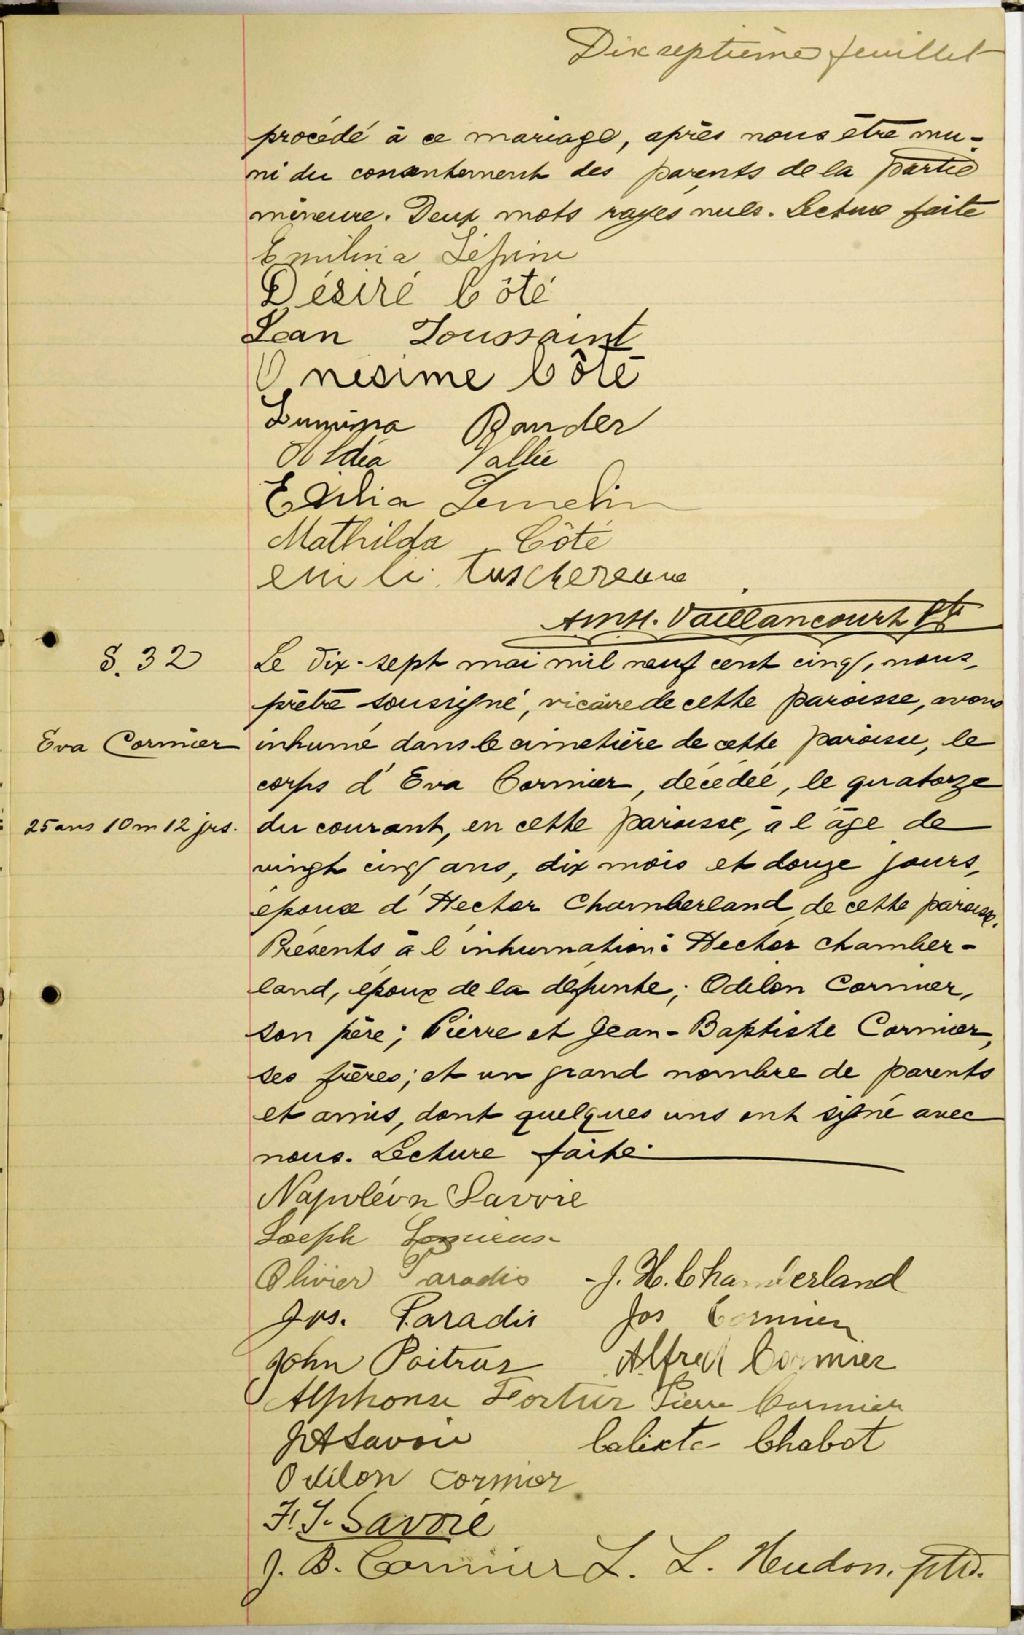 Dix septième feuillet
procédé à ce mariage, après nous être mu-
ni du consentement des parents de la partie
mineure. Deux mots rayés nuls. Lecture faite
Emilina Lépine
Désiré Côté
Jean Toussaint
Onesime Côté
Pander
Vallée
Exilia Lemelin
Mathilda Côté
Vaillancourt Ptr
S. 32
Le dix-sept mai mil neuf cent cinq, nous,
prêtre soussigné, vicaire de cette paroisse, avons
Eva Cormier
inhumé dans le cimetière de cette paroisse, le
corps d'Eva Cormier, décédée, le quatorze
25 ans 10 m 12 jrs.
du courant, en cette paroisse, à l'âge de
vingt cinq ans, dix mois et douze jours,
épouse d'Hector Chamberland, de cette paroisse.
Présents à l'inhumation: Hector Chamber-
land, époux de la défunte; Odilon Cormier,
son père; Pierre et Jean-Baptiste Cormier,
ses frères; et un grand nombre de parents
et amis, dont quelques uns ont signé avec
nous. Lecture faite.
Napoléon Savoie
Joseph Lemieux
Olivier Paradis J. H. Chamberland
Jos. Paradis Jos Cormier
John Poitras Alfred Cormier
Alphonse Fortier Pierre Cormier
J A Savoie Calixte Chabot
Odilon Cormier
F. T. Savoie
J. B. Cormier L. L. Hudon, ptre.